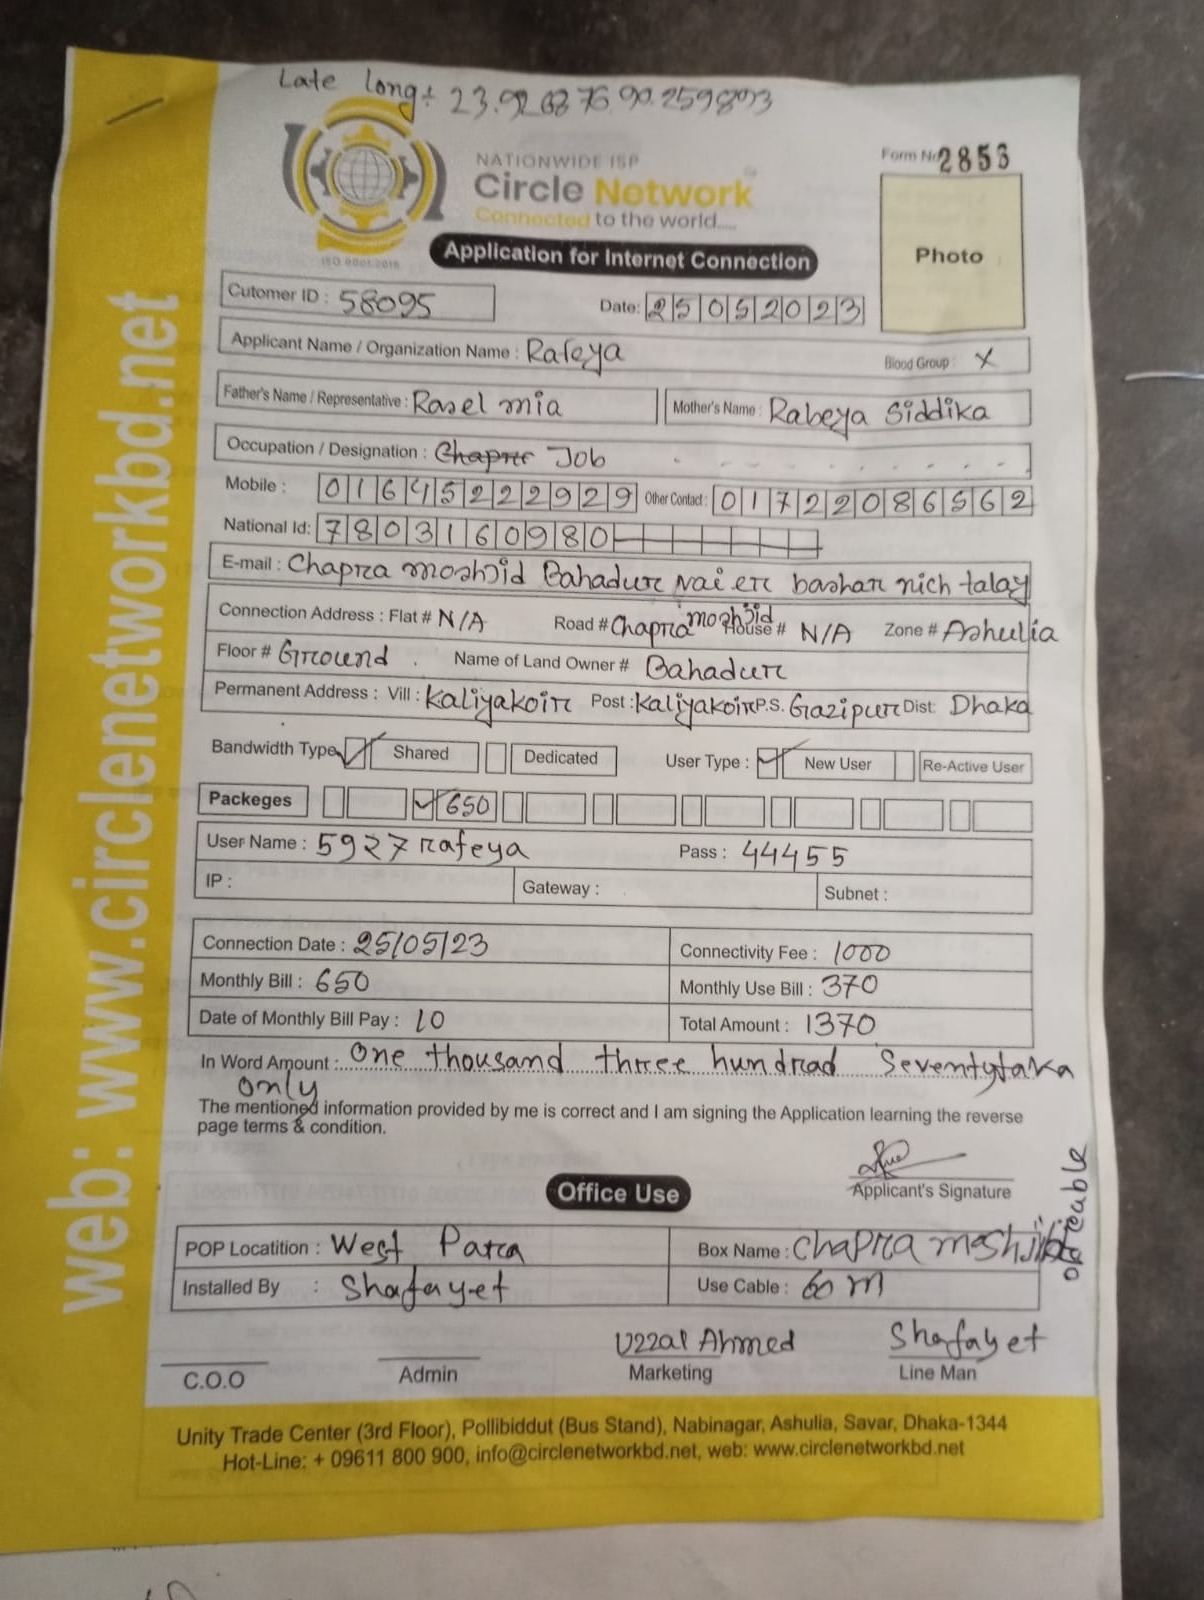 Late long÷ 23.9268 76.90.2598003
NATIONWIDE ISP
Form No 2853
Circle Network
Connected to the world.....
ISO 9001:2015
Application for Internet Connection
Photo
Cutomer ID : 58095
Date: 25052023
Applicant Name / Organization Name : Rafeya
Blood Group : X
Father's Name / Representative : Rasel mia
Mother's Name : Rabeya Siddika
Occupation / Designation : Job
Mobile : 01645222929 Other Contact : 01722086562
National Id: 7803160980
E-mail : Chapra moshjid Bahadur vai er bashar nich talay
Connection Address : Flat # N/A Road # Chapra moshjid House # N/A Zone # Ashulia
Floor # Ground . Name of Land Owner # Bahadur
Permanent Address : Vill : Kaliyakoir Post : Kaliyakoir P.S. Gazipur Dist: Dhaka
Bandwidth Type Shared Dedicated User Type : New User Re-Active User
Packeges 650
User Name : 5927rafeya Pass : 44455
IP : Gateway : Subnet :
Connection Date : 25/05/23 Connectivity Fee : 1000
Monthly Bill : 650 Monthly Use Bill : 370
Date of Monthly Bill Pay : 10 Total Amount : 1370
In Word Amount : One thousand three hundrad Seventytaka
only
The mentioned information provided by me is correct and I am signing the Application learning the reverse
page terms & condition.
Applicant's Signature
Office Use
POP Locatition : West Para Box Name : Chapra moshjid
Installed By : Shafayet Use Cable : 60 m
Uzzal Ahmed Shafayet
C.O.O Admin Marketing Line Man
Unity Trade Center (3rd Floor), Pollibiddut (Bus Stand), Nabinagar, Ashulia, Savar, Dhaka-1344
Hot-Line: + 09611 800 900, info@circlenetworkbd.net, web: www.circlenetworkbd.net
web: www.circlenetworkbd.net